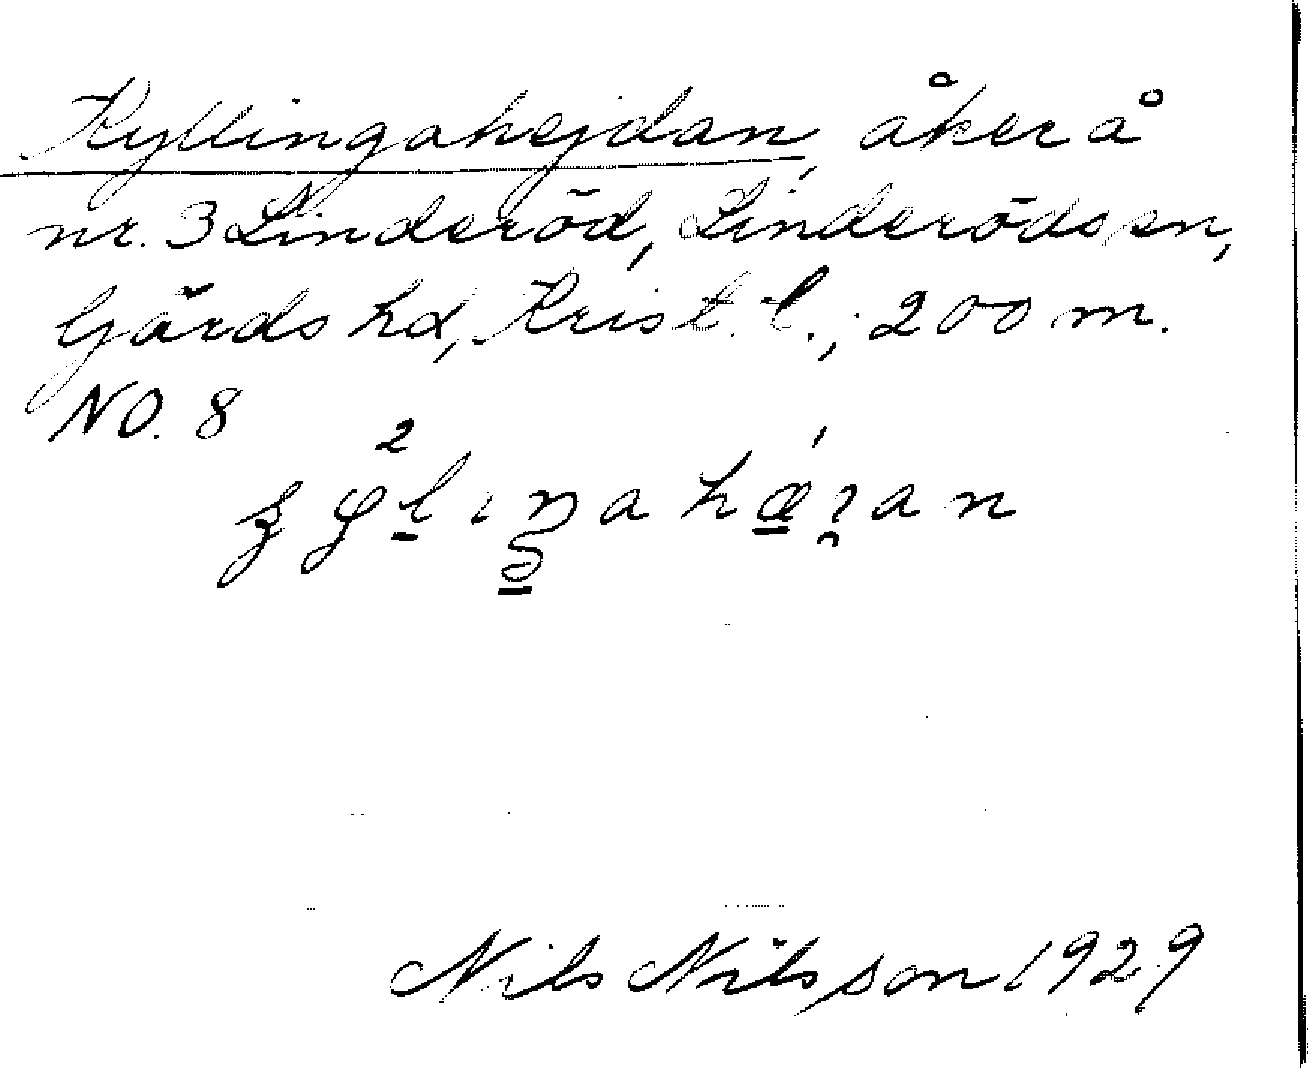 Kyllingahejdan, åker å
nr. 3 Linderöd, Linderöds sn,
Gärds hd, Krist. l., 200 m.
NO. 8
Nils Nilsson 1929